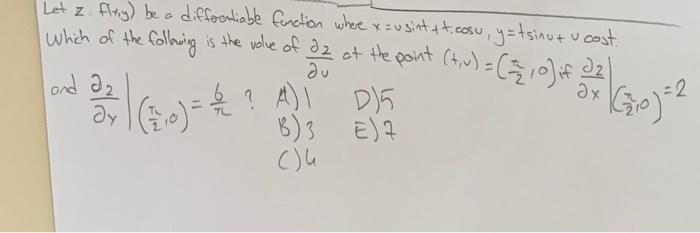 Let z = f(x,y) be a differentiable function where x = u sint + t.cosu, y = t sinu + u cost.
Which of the following is the value of ∂z/∂u at the point (t,u) = (π/2, 0) if ∂z/∂x |(π/2, 0) = 2
and ∂z/∂y |(π/2, 0) = 6/π ? A) 1 D) 5
B) 3 E) 7
C) 4